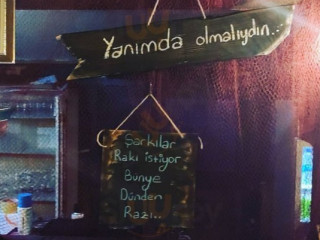 Yanımda olmalıydın...
Şarkılar
Rakı istiyor
Bünye
Dünden
Razı..